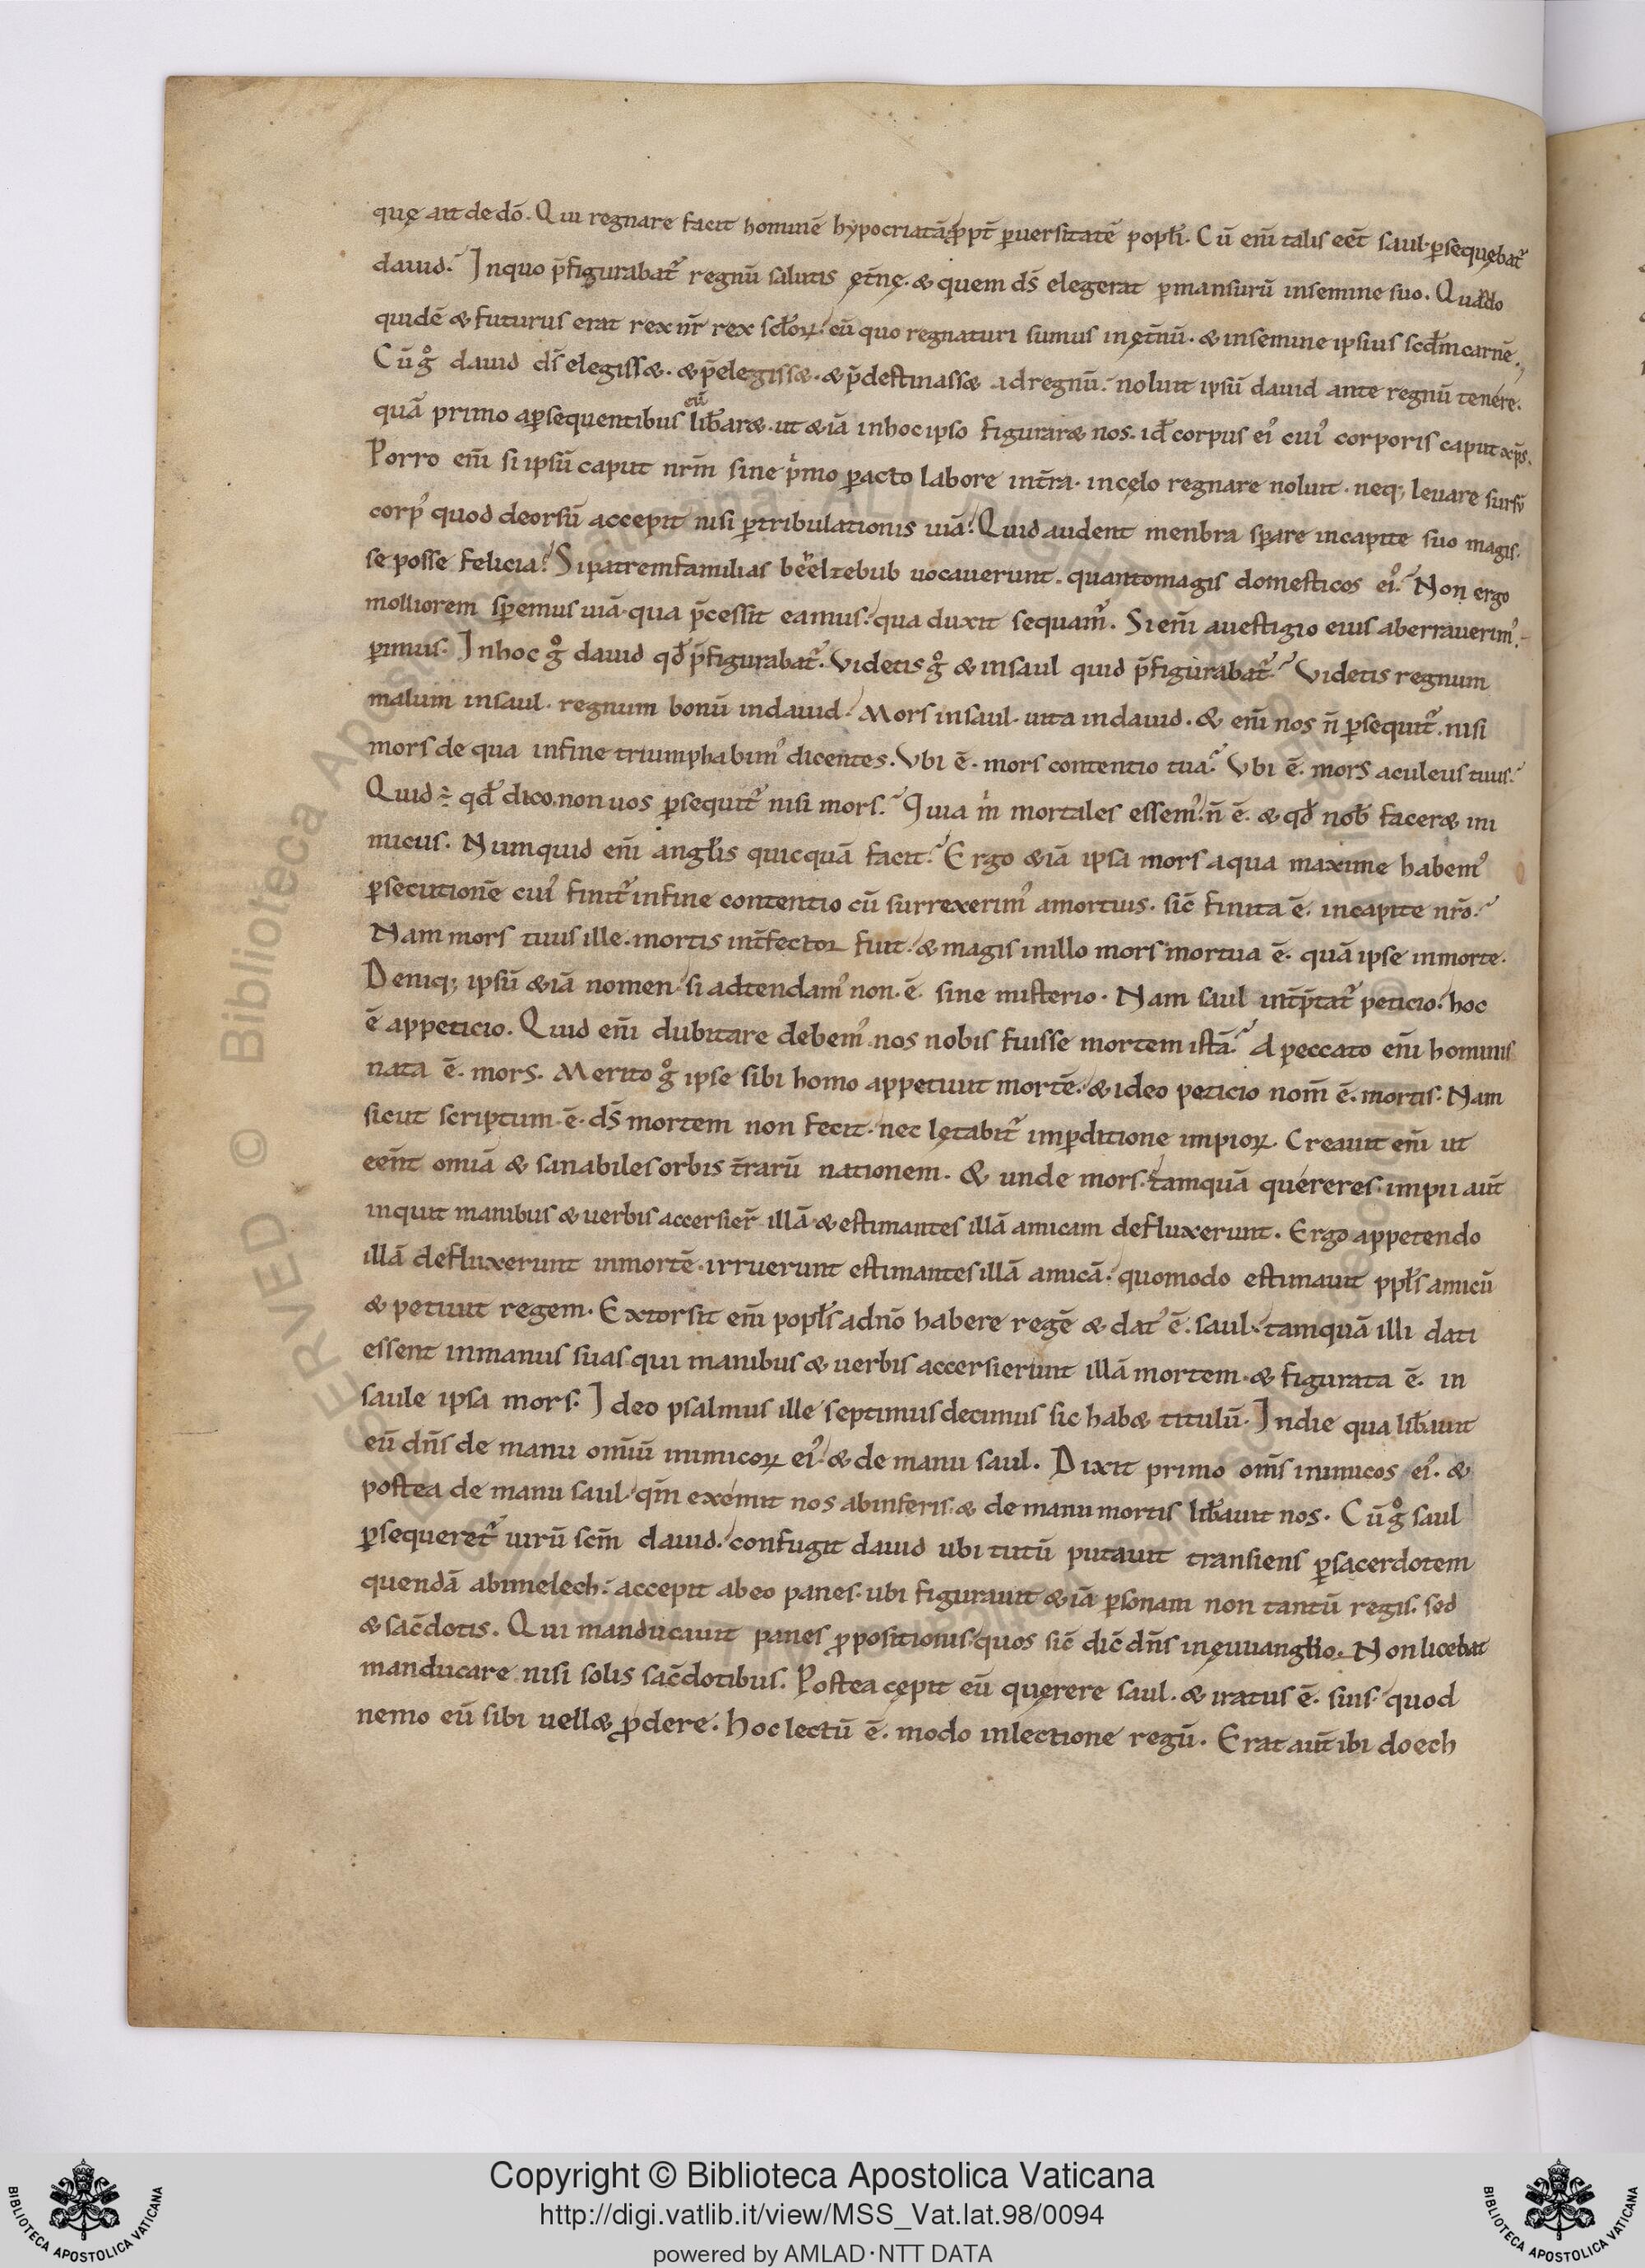 quę ait de dō. Qui regnare facit hominē hypocriatā ꝓpt̄ ꝑuersitatē popłi. Cū em̄ talis eēt saul. ꝑsequębat᷑
dauid.᷉ Inquo p̄figurabat᷑ regnū salutis ęt̄nę. & quem ds̄ elegerat ꝑmansurū insemine suo. Quādo
quidē & futurus erat rex nr̄ rex scłoꝝ. cū quo regnaturi sumus inęt̄nū. & insemine ipsius scd̄m carnē.
Cū gͦ dauid ds̄ elegiss&. & p̄elegiss&. & p̄destinass& ad regnū. noluit ipsū dauid ante regnū tenere.
quā primo aꝑsequentibus eū lib̄ar&. ut &iā inhocipso figurar& nos. id̄ corpus ei᷒ cui᷒ corporis caput xp̄s.
Porro em̄ si ipsū caput nrm̄ sine p̍mo ꝑacto labore int̄ra. incęlo regnare noluit. neq; leuare sursū
corp᷒ quod deorsū accepit nisi ꝑtribulationis uiā. Quid audent menbra sꝑare incapite suo magis.
se posse felicia. Si patremfamilias beeltebub uocauerunt. quantomagis domesticos ei᷒.᷉ Non ergo
molliorem sꝑemus uiā. qua p̄cessit eamus. qua duxit sequam᷒. Si em̄ auestigio eius aberrauerim᷒.
ꝑimus. Inhoc gͦ dauid qd̄ p̄figurabat᷑. Videtis gͦ & insaul quid p̄figurabat᷑.᷉ Videtis regnum
malum insaul. regnum bonū indauid. Mors insaul. uita indauid. & em̄ nos n̄ ꝑsequit᷑. nisi
mors de qua infine triumphabim᷒ dicentes. Vbi ē. mors contentio tua.᷉ Vbi ē. mors aculeus tuus.᷉
Quid ÷ qd̄ dico. non uos ꝑsequit᷑ nisi mors.᷉ Quia n̍ mortales essem᷒. n̄ ē. & qd̄ nob̄ facer& ini
micus. Numquid em̄ angłis quicquā facit.᷉ Ergo &iā ipsa mors aqua maxime habem᷒
ꝑsecutionē cui᷒ finit᷑ infine contentio cū surrexerim᷒ amortuis. sic̄ finita ē. incapite nr̄o.᷉
Nam mors tuus ille. mortis int̄fector fuit. & magis inillo mors mortua ē. quā ipse inmorte.
Deniq; ipsū &iā nomen si adtendam᷒ non. ē. sine misterio. Nam saul int̄p̄tat᷑ peticio. hoc
ē appeticio. Quid em̄ dubitare debem᷒ nos nobis fuisse mortem istā.᷉ A peccato em̄ hominis
nata ē. mors. Merito gͦ ipse sibi homo appetiuit mortē. & ideo peticio nom̄ ē. mortis. Nam
sicut scriptum. ē. ds̄ mortem non fecit. nec lętabit᷑ inꝑditione impioꝝ. Creauit em̄ ut
eēnt omiā & sanabiles orbis t̄rarū nationem. & unde mors. tamquā quereres. impii aut̄
inquit manibus & uerbis accersier̄ illā. & estimantes illā amicam defluxerunt. Ergo appetendo
illā defluxerunt inmortē. irruerunt estimantes illā amicā. quomodo estimauit ppłs amicū
& petiuit regem. Extorsit em̄ popłs adn̄o habere regē & dat᷒ ē. saul. tamquā illi dati
essent inmanus suas qui manibus & uerbis accersierunt illā mortem. & figurata ē. in
saule ipsa mors. Ideo psalmus ille septimus decimus sic hab& titulū. Indie qua lib̄auit
eū dn̄s de manu om̄iū inimicoꝝ ei᷒. & de manu saul. Dixit primo om̄s inimicos ei᷒. &
postea de manu saul. qm̄ exemit nos abinferis. & de manu mortis lib̄auit nos. Cū gͦ saul
ꝑsequeret᷑ uirū scm̄ dauid. confugit dauid ubi tutū putauit transiens ꝑsacerdotem
quendā abimelech. accepit abeo panes. ubi figurauit &iā ꝑsonam non tantū regis. sed
& sac̄dotis. Qui manducauit panes ꝓpositionis. quos sic̄ dic̄ dn̄s inęuuangłio. Non licebat
manducare nisi solis sac̄dotibus. Postea cępit eū quęrere saul. & iratus ē. suis quod
nemo eū sibi uell& ꝓdere. hoc lectū ē. modo inlectione regū. Erat aut̄ ibi doech
Copyright © Biblioteca Apostolica Vaticana
http://digi.vatlib.it/view/MSS_Vat.lat.98/0094
powered by AMLAD·NTT DATA
BIBLIOTECA APOSTOLICA VATICANA
BIBLIOTECA APOSTOLICA VATICANA